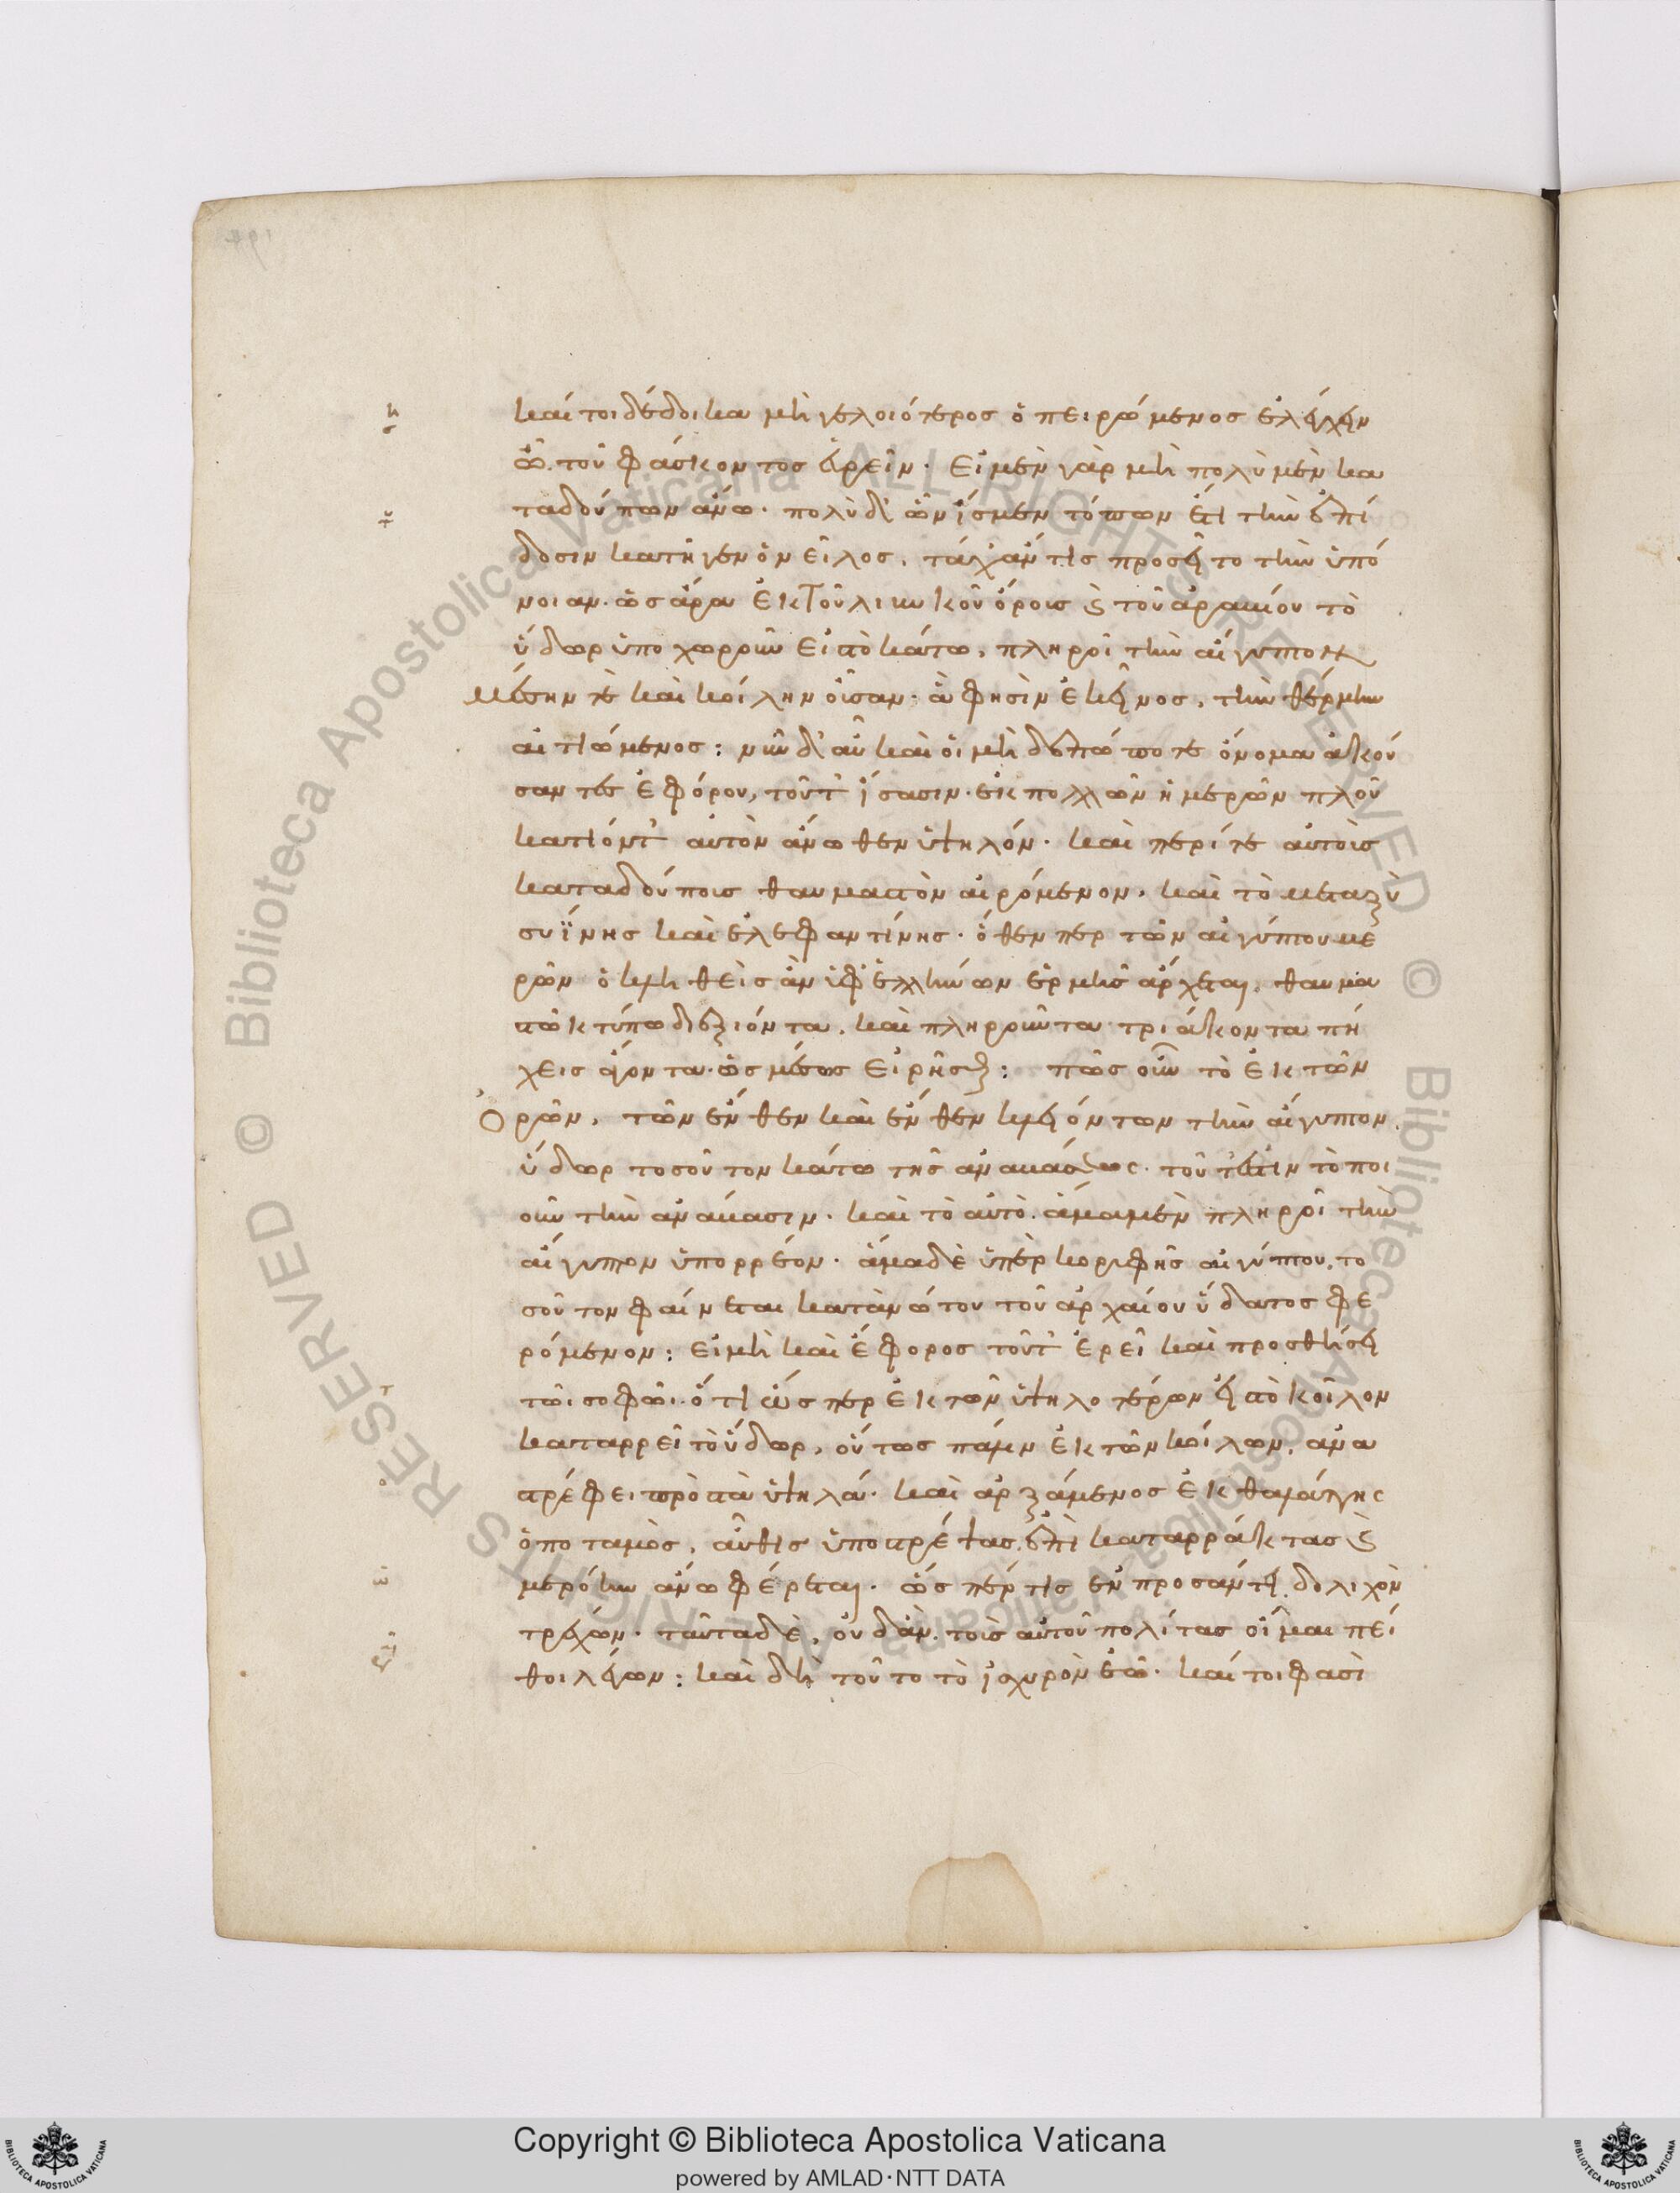 καίτοι δέδοικα μὴ γελοιότερος ὁ πειρώμενος ἐλέγχειν
ᾖ τοῦ φάσκοντος εὑρεῖν. εἰ μὲν γὰρ μὴ πολὺ μὲν κα
ταδούπων ἄνω. πολὺ δ' ὧν ἴσμεν τόπων ἔτι τὴν ἐπί
δοσιν κατῆγεν ὁ νεῖλος, τάχ' ἄν τις προσεῖτο τὴν ὑπό
νοιαν. ὡς ἄρα ἐκ τοῦ λιβυκοῦ ὄρους καὶ τοῦ ἀραβίου τὸ
ὕδωρ ὑποχωροῦν εἰς τὸ κάτω, πληροῖ τὴν αἴγυπτον
μέσην τε καὶ κοίλην οὖσαν. ἃ φησὶν ἐκεῖνος, τὴν θέρμην
αἰτιώμενος: νῦν δ' αὖ καὶ οἱ μὴ δεπώποτε ὄνομα ἀκού
σαντες ἐφόρου, τοῦτ' ἴσασιν. ἐκ πολλῶν ἡμερῶν πλοῦ
κατιόντ' αὐτὸν ἄνωθεν ὑψηλόν. καὶ περί τε αὐτοῖς
καταδούποις θαυμαστὸν αἰρόμενον. καὶ τὸ μεταξὺ
συήνης καὶ ἐλεφαντίνης. ὅθεν περ τῶν αἰγύπτου με
ρῶν ὁ κληθεὶς ἂν ὑφ' ἑλλήνων ἑρμῆς ἄρχεται, θαυμα
στῶ κτύπω διεξιόντα. καὶ πληροῦντα τριάκοντα πή
χεις ἄγοντα. ὡς μέσως εἰρῆσθαι: πῶς οὖν τὸ ἐκ τῶν
ὀρῶν, τῶν ἔνθεν καὶ ἔνθεν κλειόντων τὴν αἴγυπτον,
ὕδωρ τοσοῦτον κάτω τῆς ἀναβάσεως. τοῦτ' ἔστιν τὸ ποι
οῦν τὴν ἀνάβασιν. καὶ τὸ αὐτὸ ἅμα μὲν πληροῖ τὴν
αἴγυπτον ὑπορρέον. ἅμα δὲ ὑπὲρ κορυφῆς αἰγύπτου, το
σοῦτον φαίνεται κατὰ νώτου τοῦ ἀρχαίου ὕδατος φε
ρόμενον: εἰ μὴ καὶ ἔφορος τοῦτ' ἐρεῖ καὶ προσθήσει
τῶι σοφῶι. ὅτι ὥσπερ ἐκ τῶν ὑψηλοτέρων εἰς τὸ κοῖλον
καταρρεῖ τὸ ὕδωρ, οὕτως πάλιν ἐκ τῶν κοίλων, ἀνα
στρέφει πρὸς τὰ ὑψηλά. καὶ ἀρξάμενος ἐκ θαλάττης
ὁ ποταμὸς, αὖθις ὑποστρέψας, ἐπὶ καταρράκτας καὶ
μερόην ἄνω φέρεται. ὥσπέρ τις ἐν προσάντει δολιχὸν
τρέχων. ταῦτα δὲ, οὐδ' ἂν τοὺς αὐτοῦ πολίτας οἶμαι πεί
θοι λέγων: καὶ δὴ τοῦτο τὸ ἰσχυρὸν ἐῶ. καίτοι φασὶ